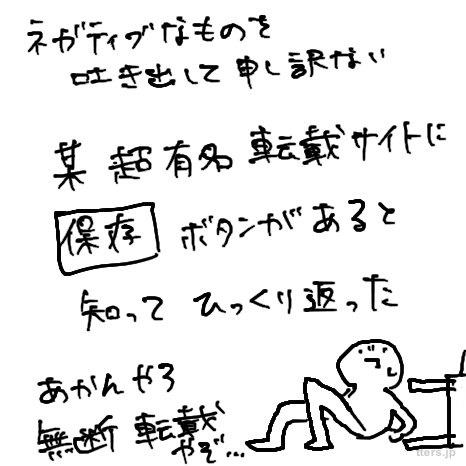 ネガティブなものを
吐き出して申し訳ない
某 超有名 転載サイトに
保存 ボタンがあると
知って ひっくり返った
あかんやろ
無断 転載
やぞ…
iters.jp